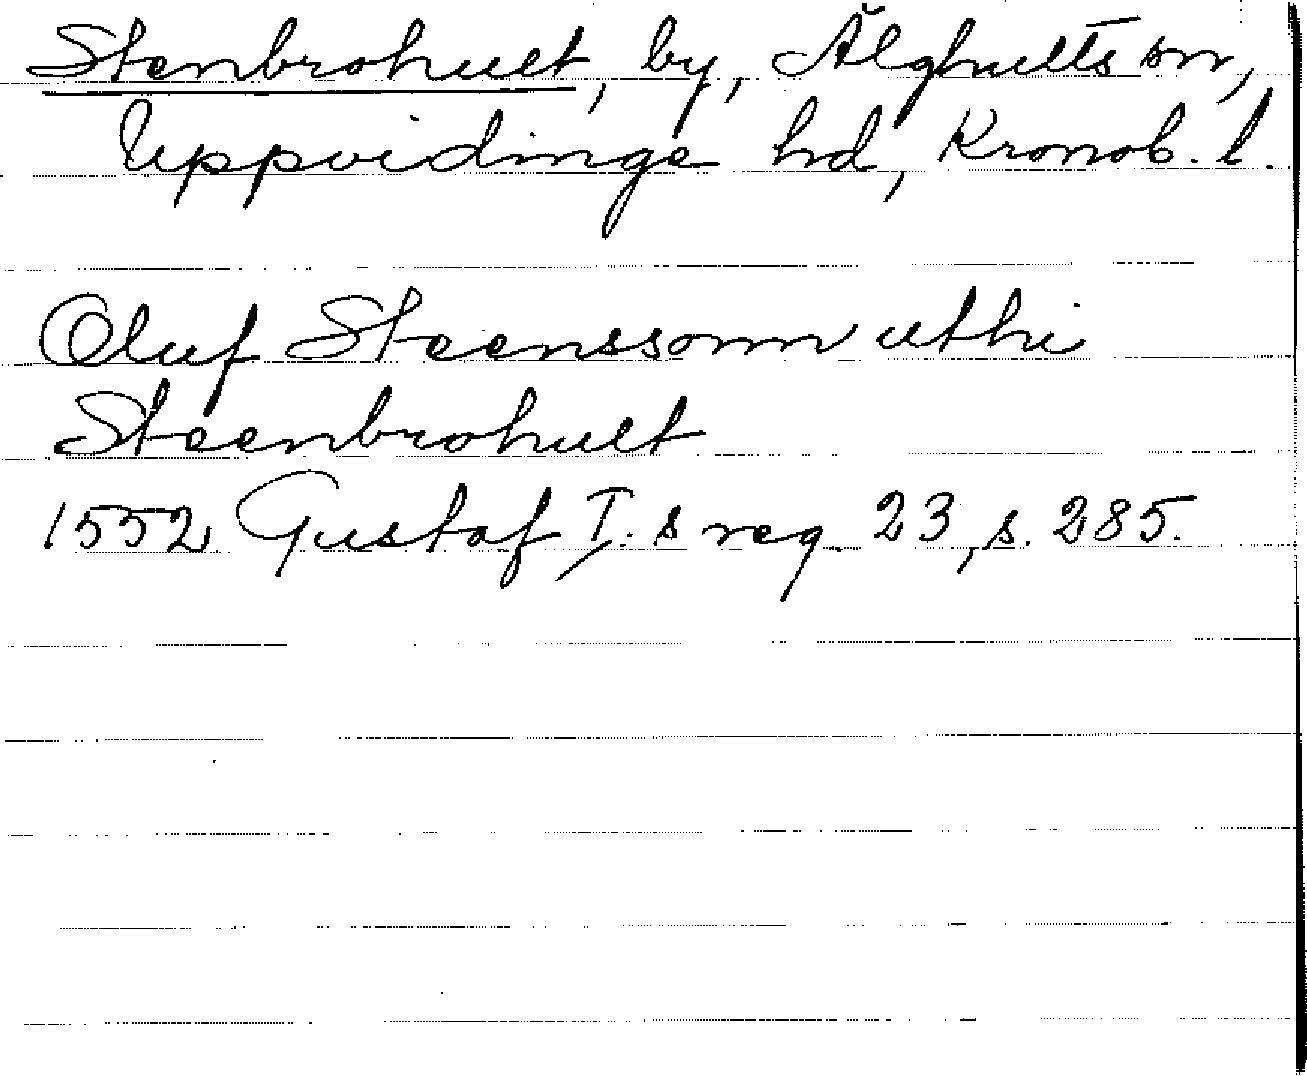 Stenbrohult, by, Älghults sn,
Uppvidinge hd, Kronob. l.
Oluf Steenssonn uthi
Steenbrohult
1552 Gustaf I. s reg. 23, s. 285.